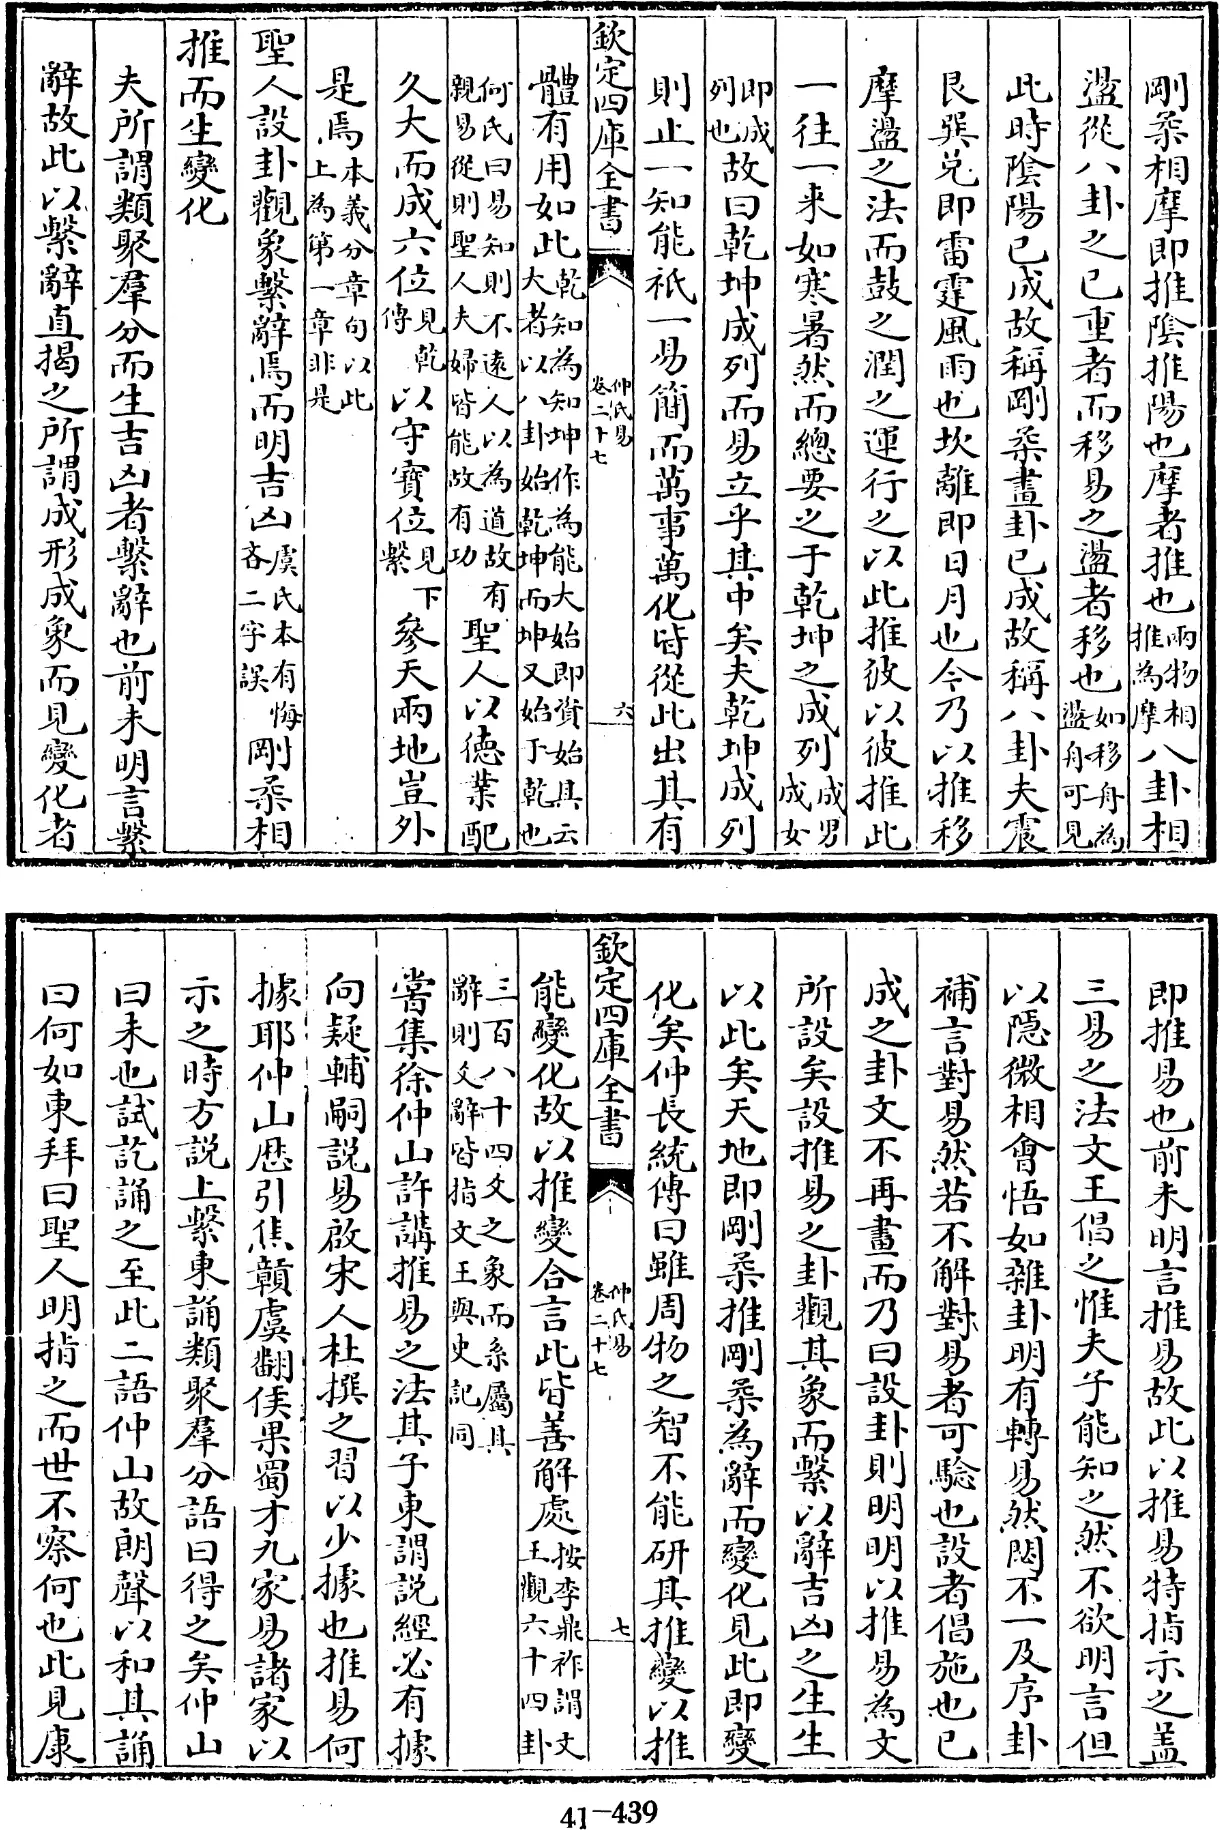 剛柔相摩即推陰推陽也摩者推也兩物相推為摩八卦相
盪從八卦之已重者而移易之盪者移也如移舟為盪舟可見
此時陰陽已成故稱剛柔畫卦已成故稱八卦夫震
艮巽兌即雷霆風雨也坎離即日月也今乃以推移
摩盪之法而鼓之潤之運行之以此推彼以彼推此
一往一来如寒暑然而總要之于乾坤之成列成男成女
即成列也故曰乾坤成列而易立乎其中矣夫乾坤成列
則止一知能祇一易簡而萬事萬化皆從此出其有
欽定四庫全書 仲氏易卷二十七 六
體有用如此乾知為知坤作為能大始即資始具云大者以八卦始乾坤而坤又始于乾也
何氏曰易知則不遠人以為道故有親易從則聖人夫婦皆能故有功聖人以德業配
久大而成六位見乾傳以守寳位見下繫參天兩地豈外
是焉本義分章句以此上為第一章非是
聖人設卦觀象繫辭焉而明吉凶虞氏本有悔吝二字誤剛柔相
推而生變化
夫所謂類聚羣分而生吉凶者繫辭也前未明言繫
辭故此以繫辭直揭之所謂成形成象而見變化者
即推易也前未明言推易故此以推易特指示之盖
三易之法文王倡之惟夫子能知之然不欲明言但
以隱微相會悟如雜卦明有轉易然閟不一及序卦
補言對易然若不解對易者可驗也設者倡施也已
成之卦文不再畫而乃曰設卦則明明以推易為文
所設矣設推易之卦觀其象而繫以辭吉凶之生生
以此矣天地即剛柔推剛柔為辭而變化見此即變
化矣仲長統傳曰雖周物之智不能研其推變以推
欽定四庫全書 仲氏易卷二十七 七
能變化故以推變合言此皆善解處按李鼎祚謂文王觀六十四卦
三百八十四爻之象而系屬其辭則爻辭皆指文王與史記同
嘗集徐仲山許講推易之法其子東謂説經必有據
向疑輔嗣説易啟宋人杜撰之習以少據也推易何
據耶仲山歴引焦贛虞翻侯果蜀才九家易諸家以
示之時方説上繫東誦類聚羣分語曰得之矣仲山
曰未也試訖誦之至此二語仲山故朗聲以和其誦
曰何如東拜曰聖人明指之而世不察何也此見康
41-439